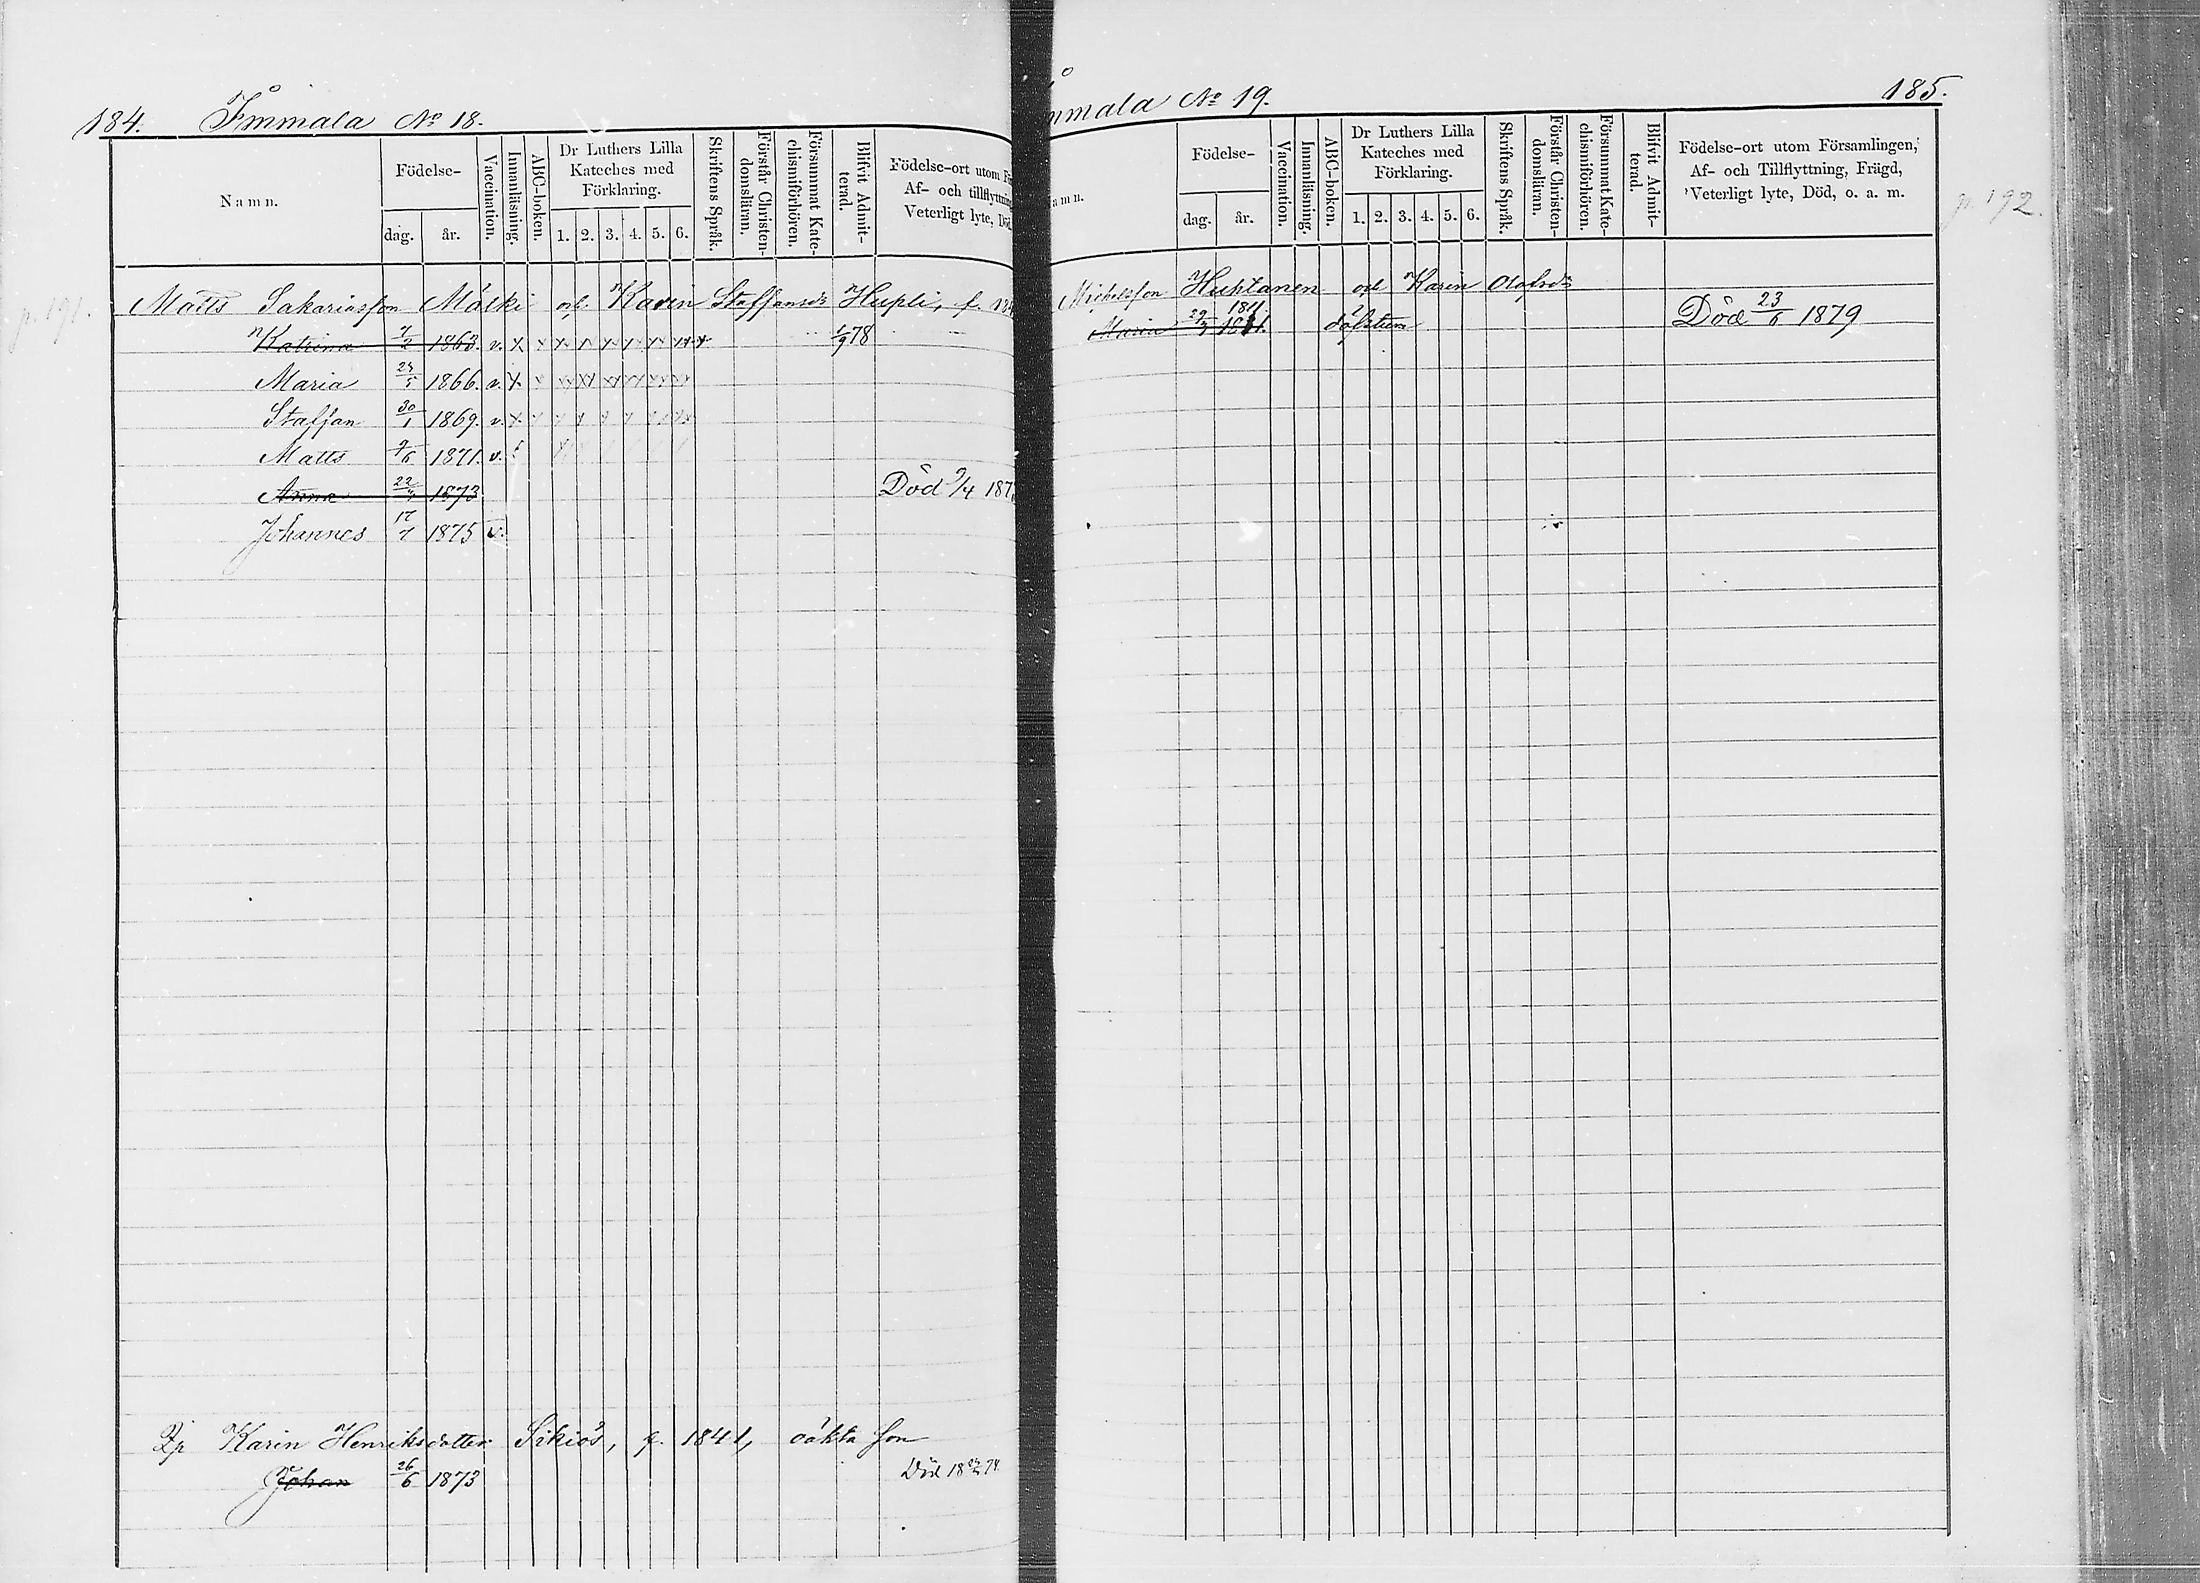 184. Immala № 18.
Namn.
Födelse-
dag. år.
Vaccination.
Innanläsning.
ABC-boken.
Dr Luthers Lilla
Kateches med
Förklaring.
1. 2. 3. 4. 5. 6.
Skriftens Språk.
Förstår Christen-
domsläran.
Försummat Kate-
chismiförhören.
Blifvit Admit-
terad.
Födelse-ort utom
Af- och tillflyttning
Veterligt lyte, Död
p. 191.
Matts Sakariasson Mälki och Karin Staffansdr Hupli, f.
Katrina 7/2 1863. v. x x x x x x x x x 1/9 78
Maria 5 1866. v. x
Staffan 30/1 1869. v. x
Matts /6 1871. v.
Anna 22 1873 Död 9/4 187
Johannes 17/7 1875 v.
Karin Henriksdotter Sikiös, 1841, oäkta son
Johan 26/6 1873 Död 18 74.
mmala № 19. 185.
amn.
Födelse-
dag. år.
Vaccination.
Innanläsning.
ABC-boken.
Dr Luthers Lilla
Kateches med
Förklaring.
1. 2. 3. 4. 5. 6.
Skriftens Språk.
Förstår Christen-
domsläran.
Försummat Kate-
chismiförhören.
Blifvit Admit-
terad.
Födelse-ort utom Församlingen,
Af- och Tillflyttning, Frägd,
Veterligt lyte, Död, o. a. m.
p. 192.
Michelsson Huhtanen och Karin Olofsdr
Maria 29 1871. döfstum Död 23/6 1879